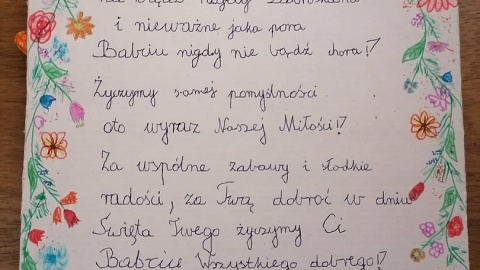 nie bądź nigdy
i nieważne jaka pora
Babciu nigdy nie bądź chora!
Życzymy samej pomyślności
oto wyraz Naszej Miłości!
Za wspólne zabawy i słodkie
radości, za Twą dobroć w dniu
Święta Twego życzymy Ci
Babciu Wszystkiego dobrego!